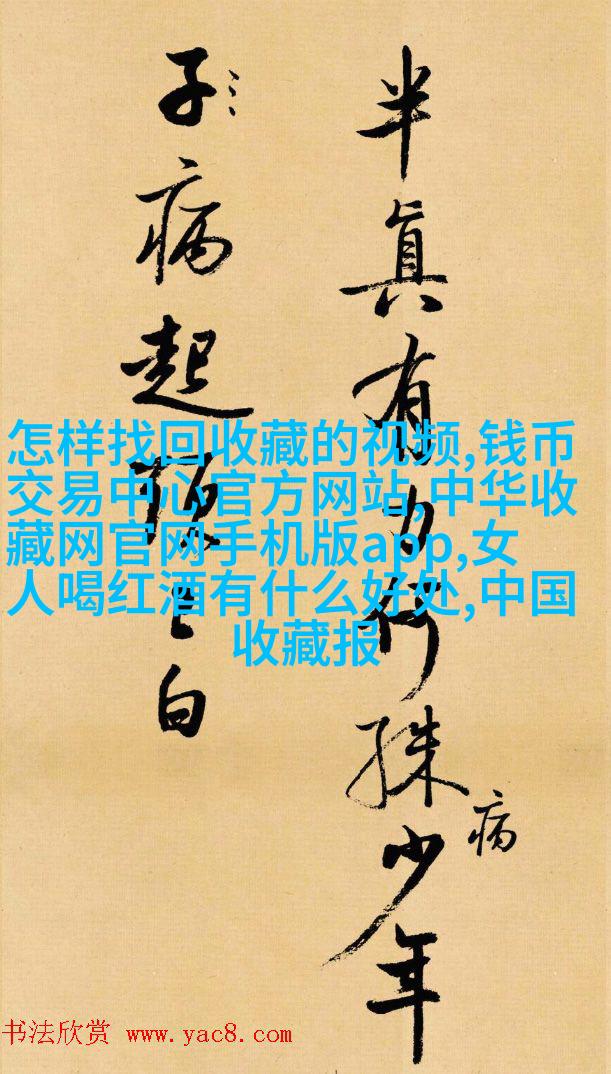 半真有力何殊病少年
子病起頭已白
怎样找回收藏的视频,钱币
交易中心官方网站,中华收
藏网官网手机版app,女
人喝红酒有什么好处,中国
收藏报
书法欣赏 www.yac8.com